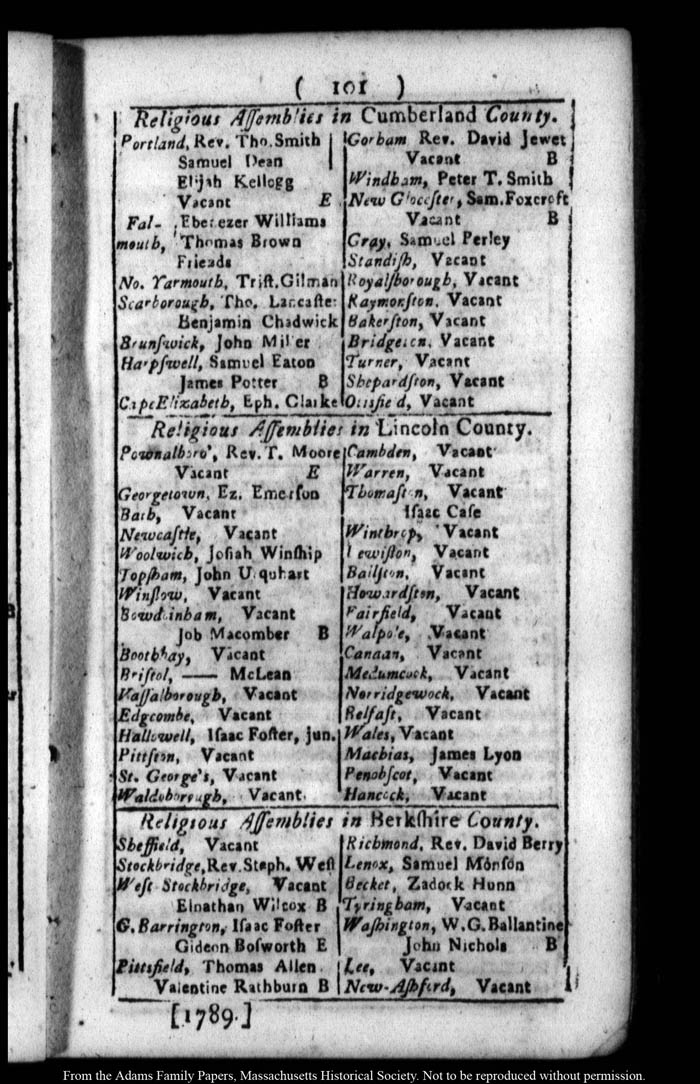 ( 101 )
Religious Assemblies in Cumberland County.
Portland, Rev. Tho. Smith
Samuel Dean
Elijah Kellogg
Vacant E
Fal- Ebenezer Williams
mouth, Thomas Brown
Friends
No. Yarmouth, Trist. Gilman
Scarborough, Tho. Lancaster
Benjamin Chadwick
Brunswick, John Miller
Harpswell, Samuel Eaton
James Potter B
Cape Elizabeth, Eph. Clarke
Gorham Rev. David Jewet
Vacant B
Windham, Peter T. Smith
New Glocester, Sam. Foxcroft
Vacant B
Gray, Samuel Perley
Standish, Vacant
Royalsborough, Vacant
Raymonston, Vacant
Bakerston, Vacant
Bridgeton, Vacant
Turner, Vacant
Shepardston, Vacant
Otisfield, Vacant
Religious Assemblies in Lincoln County.
Pownalboro', Rev. T. Moore
Vacant E
Georgetown, Ez. Emerson
Bath, Vacant
Newcastle, Vacant
Woolwich, Josiah Winship
Topsham, John Urquhart
Winslow, Vacant
Bowdoinham, Vacant
Job Macomber B
Boothbay, Vacant
Bristol, —— McLean
Vassalborough, Vacant
Edgcombe, Vacant
Hallowell, Isaac Foster, jun.
Pittston, Vacant
St. George's, Vacant
Waldoborough, Vacant.
Cambden, Vacant
Warren, Vacant
Thomaston, Vacant
Isaac Case
Winthrop, Vacant
Lewiston, Vacant
Ballston, Vacant
Howardston, Vacant
Fairfield, Vacant
Walpole, Vacant
Canaan, Vacant
Medumcook, Vacant
Norridgewock, Vacant
Belfast, Vacant
Wales, Vacant
Machias, James Lyon
Penobscot, Vacant
Hancock, Vacant
Religious Assemblies in Berkshire County.
Sheffield, Vacant
Stockbridge, Rev. Steph. West
West Stockbridge, Vacant
Elnathan Wilcox B
G. Barrington, Isaac Foster
Gideon Bosworth E
Pittsfield, Thomas Allen.
Valentine Rathburn B
Richmond, Rev. David Berry
Lenox, Samuel Monson
Becket, Zadock Hunn
Tyringham, Vacant
Washington, W.G. Ballantine
John Nichols B
Lee, Vacant
New-Ashford, Vacant
[1789.]
From the Adams Family Papers, Massachusetts Historical Society. Not to be reproduced without permission.